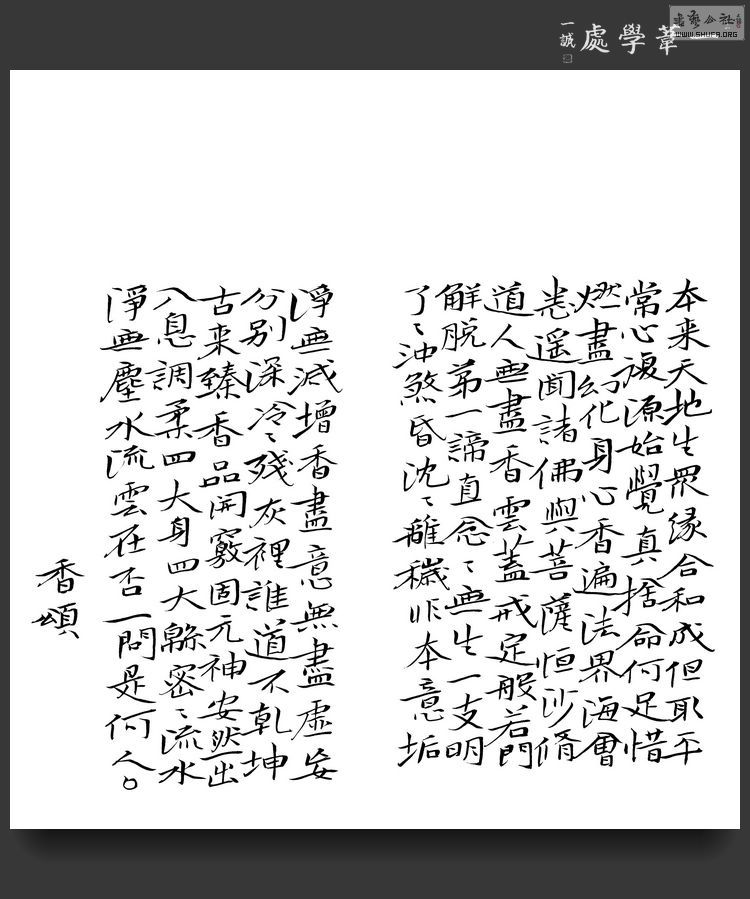 書藝公社
WWW.SHUFA.ORG
一葦學處
一誠
本来天地生眾緣合和成但取平
常心復源始覺真捨命何足惜
燃盡幻化身心香遍法界海會
悉遥聞諸佛與菩薩恒沙脩
道人無盡香雲蓋戒定般若門
解脱第一諦真念々無生一支明
了々沖煞昏沈々離穢非本意垢
淨無减增香盡意無盡虛妄
分别深冷々殘灰裡誰道不乾坤
古来臻香品開竅固元神安然出
入息調柔四大身四大緜密々流水
淨無塵水流雲在否一問是何人。
香頌